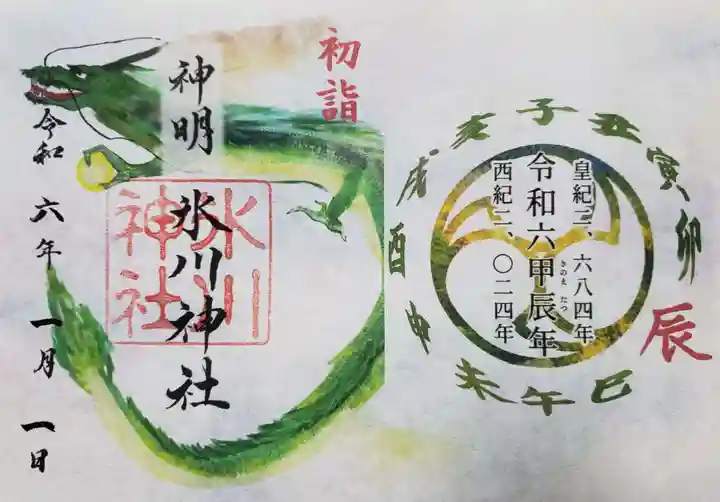 初詣
神明
氷川神社
氷川
神社
令和六年一月一日
皇紀二、六八四年
令和六甲辰年
きのえ たつ
西紀二、〇二四年
子
丑
寅
卯
辰
巳
午
未
申
酉
戌
亥